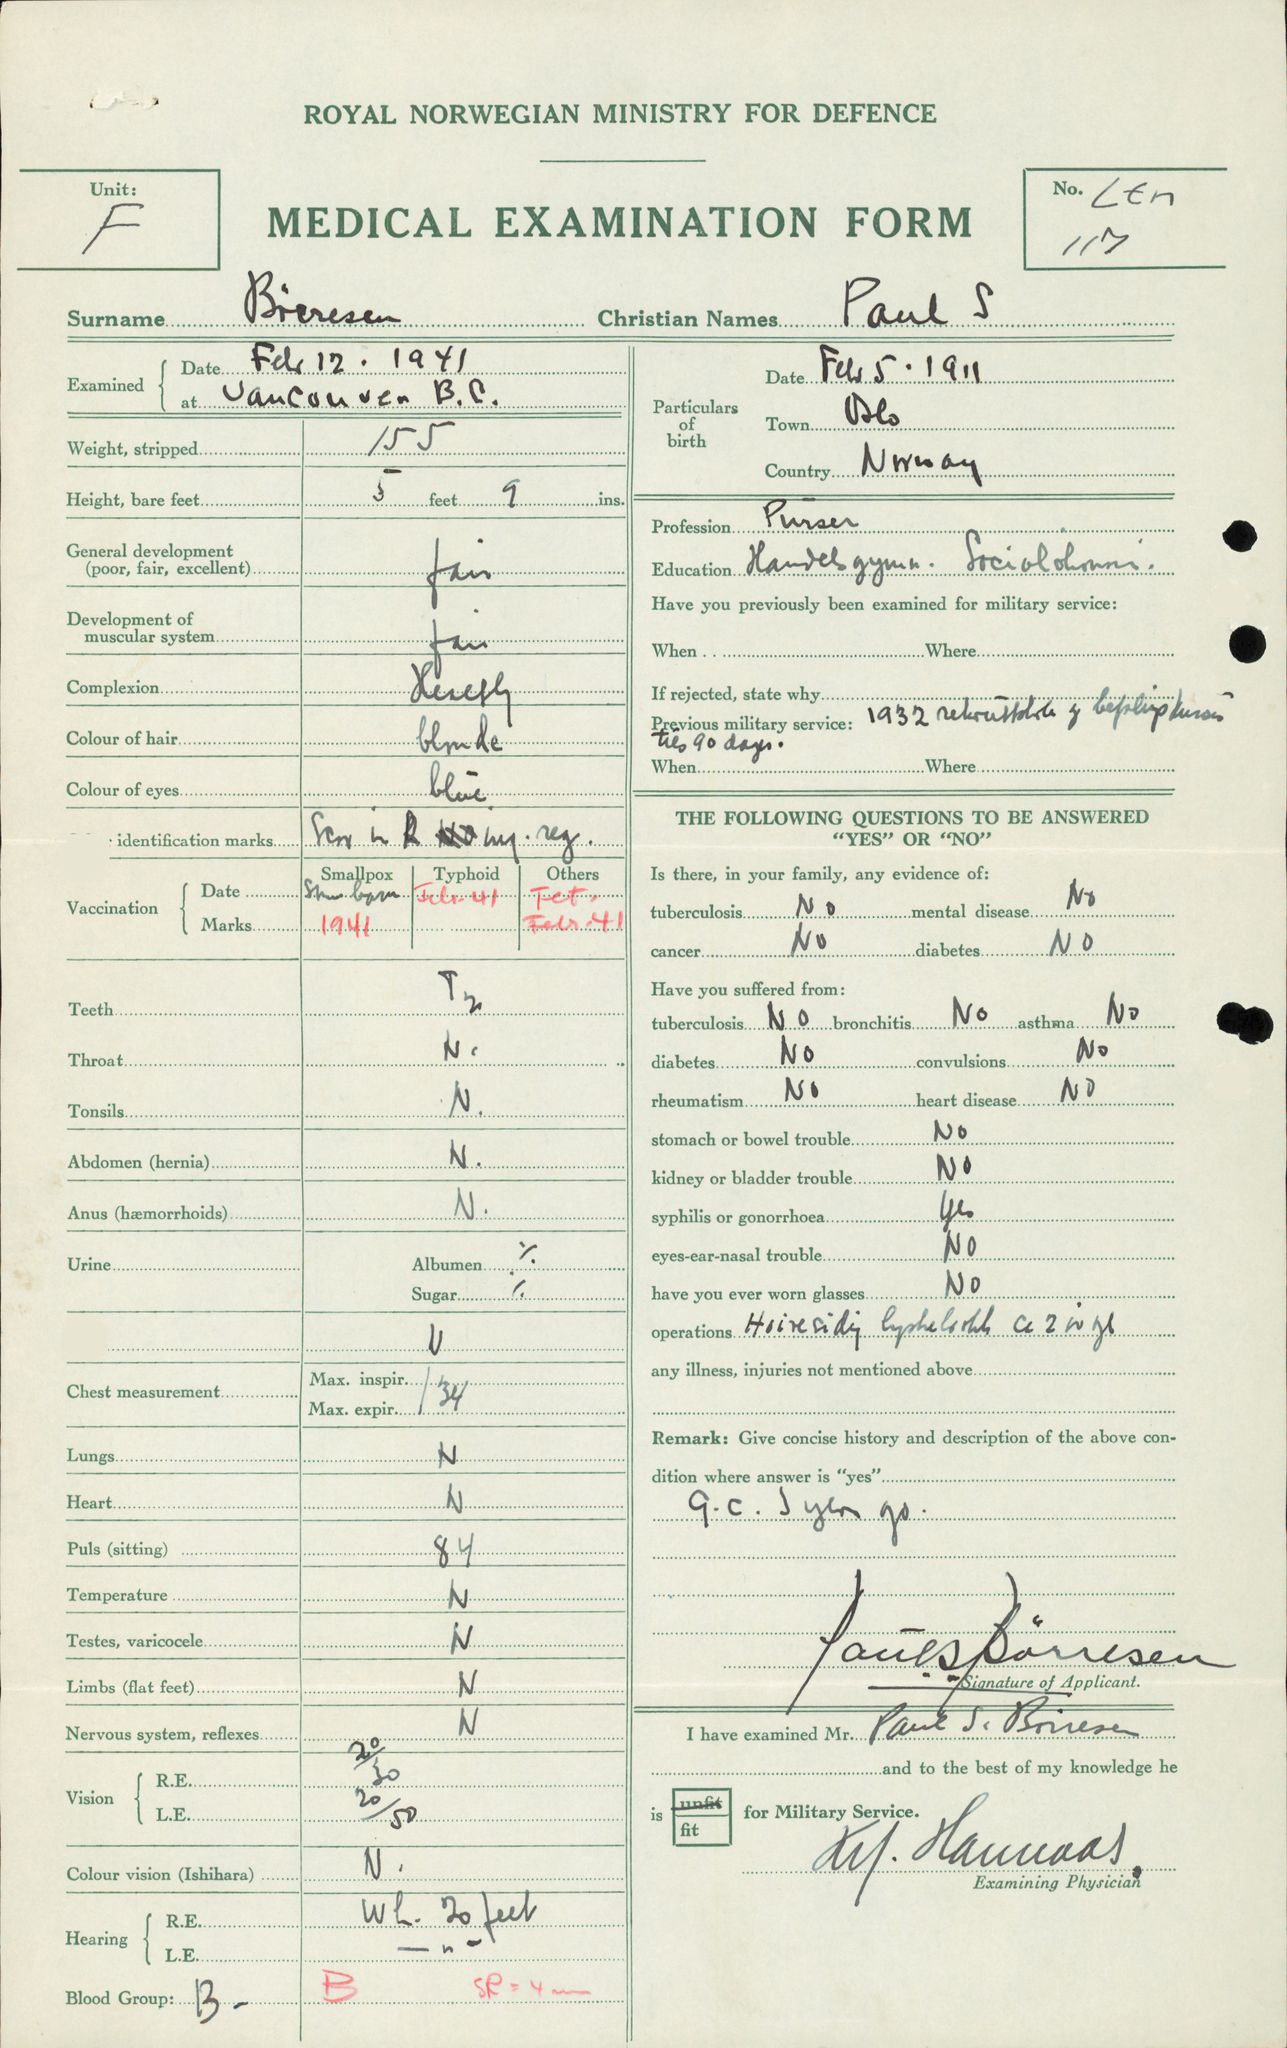 ROYAL NORWEGIAN MINISTRY FOR DEFENCE
Unit:
F
MEDICAL EXAMINATION FORM
No.
117
Surname Börresen Christian Names Paul S
Examined Date Febr 12 . 1941
at Vancouver B.C.
Particulars of birth
Date Febr 5 . 1911
Town Oslo
Country Norway
Weight, stripped 155
Height, bare feet 5 feet 9 ins.
General development
(poor, fair, excellent) fair
Development of
muscular system fair
Complexion
Colour of hair blonde
Colour of eyes blue
identification marks Scar in R ing. reg.
Vaccination
Smallpox Typhoid Others
Date Febr. 41 Tet.
Marks 1941 Febr. 41
Teeth
Throat N.
Tonsils N.
Abdomen (hernia) N.
Anus (hæmorrhoids) N.
Urine Albumen ·/.
Sugar ·/.
Chest measurement
Max. inspir.
Max. expir. 34
Lungs N
Heart N
Puls (sitting) 84
Temperature N
Testes, varicocele N
Limbs (flat feet) N
Nervous system, reflexes N
Vision R.E. 20/30
L.E. 20/50
Colour vision (Ishihara) N.
Hearing R.E. Wh. 20 feet
L.E. — " —
Blood Group: B - B SR = 4 mm
Profession Purser
Education Handelsgymn.
Have you previously been examined for military service:
When Where
If rejected, state why
Previous military service: 1932
90 days.
When Where
THE FOLLOWING QUESTIONS TO BE ANSWERED
"YES" OR "NO"
Is there, in your family, any evidence of:
tuberculosis No mental disease No
cancer No diabetes NO
Have you suffered from:
tuberculosis NO bronchitis No asthma No
diabetes No convulsions No
rheumatism No heart disease NO
stomach or bowel trouble No
kidney or bladder trouble No
syphilis or gonorrhoea Yes
eyes-ear-nasal trouble NO
have you ever worn glasses No
operations Hoiresidig
any illness, injuries not mentioned above
Remark: Give concise history and description of the above con-
dition where answer is "yes"
G.C.
Paul S Börresen
Signature of Applicant.
I have examined Mr. Paul S. Börresen
and to the best of my knowledge he
is unfit
fit
for Military Service.
Examining Physician